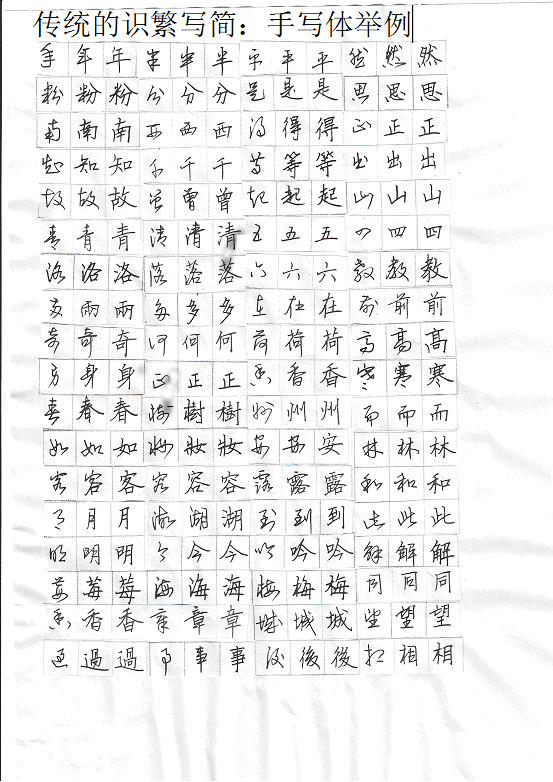 传统的识繁写简：手写体举例
年 年 年 半 半 半 平 平 平 然 然 然
粉 粉 粉 分 分 分 是 是 是 思 思 思
南 南 南 西 西 西 得 得 得 正 正 正
知 知 知 千 千 千 等 等 等 出 出 出
故 故 故 曾 曾 曾 起 起 起 山 山 山
青 青 青 清 清 清 五 五 五 四 四 四
洛 洛 洛 落 落 落 六 六 六 教 教 教
兩 兩 兩 多 多 多 在 在 在 前 前 前
奇 奇 奇 何 何 何 荷 荷 荷 高 高 高
身 身 身 正 正 正 香 香 香 寒 寒 寒
春 春 春 樹 樹 樹 州 州 州 而 而 而
如 如 如 妝 妝 妝 安 安 安 林 林 林
客 客 客 容 容 容 露 露 露 和 和 和
月 月 月 湖 湖 湖 到 到 到 此 此 此
明 明 明 今 今 今 吟 吟 吟 解 解 解
莓 莓 莓 海 海 海 梅 梅 梅 同 同 同
香 香 香 章 章 章 城 城 城 望 望 望
過 過 過 事 事 事 後 後 後 相 相 相